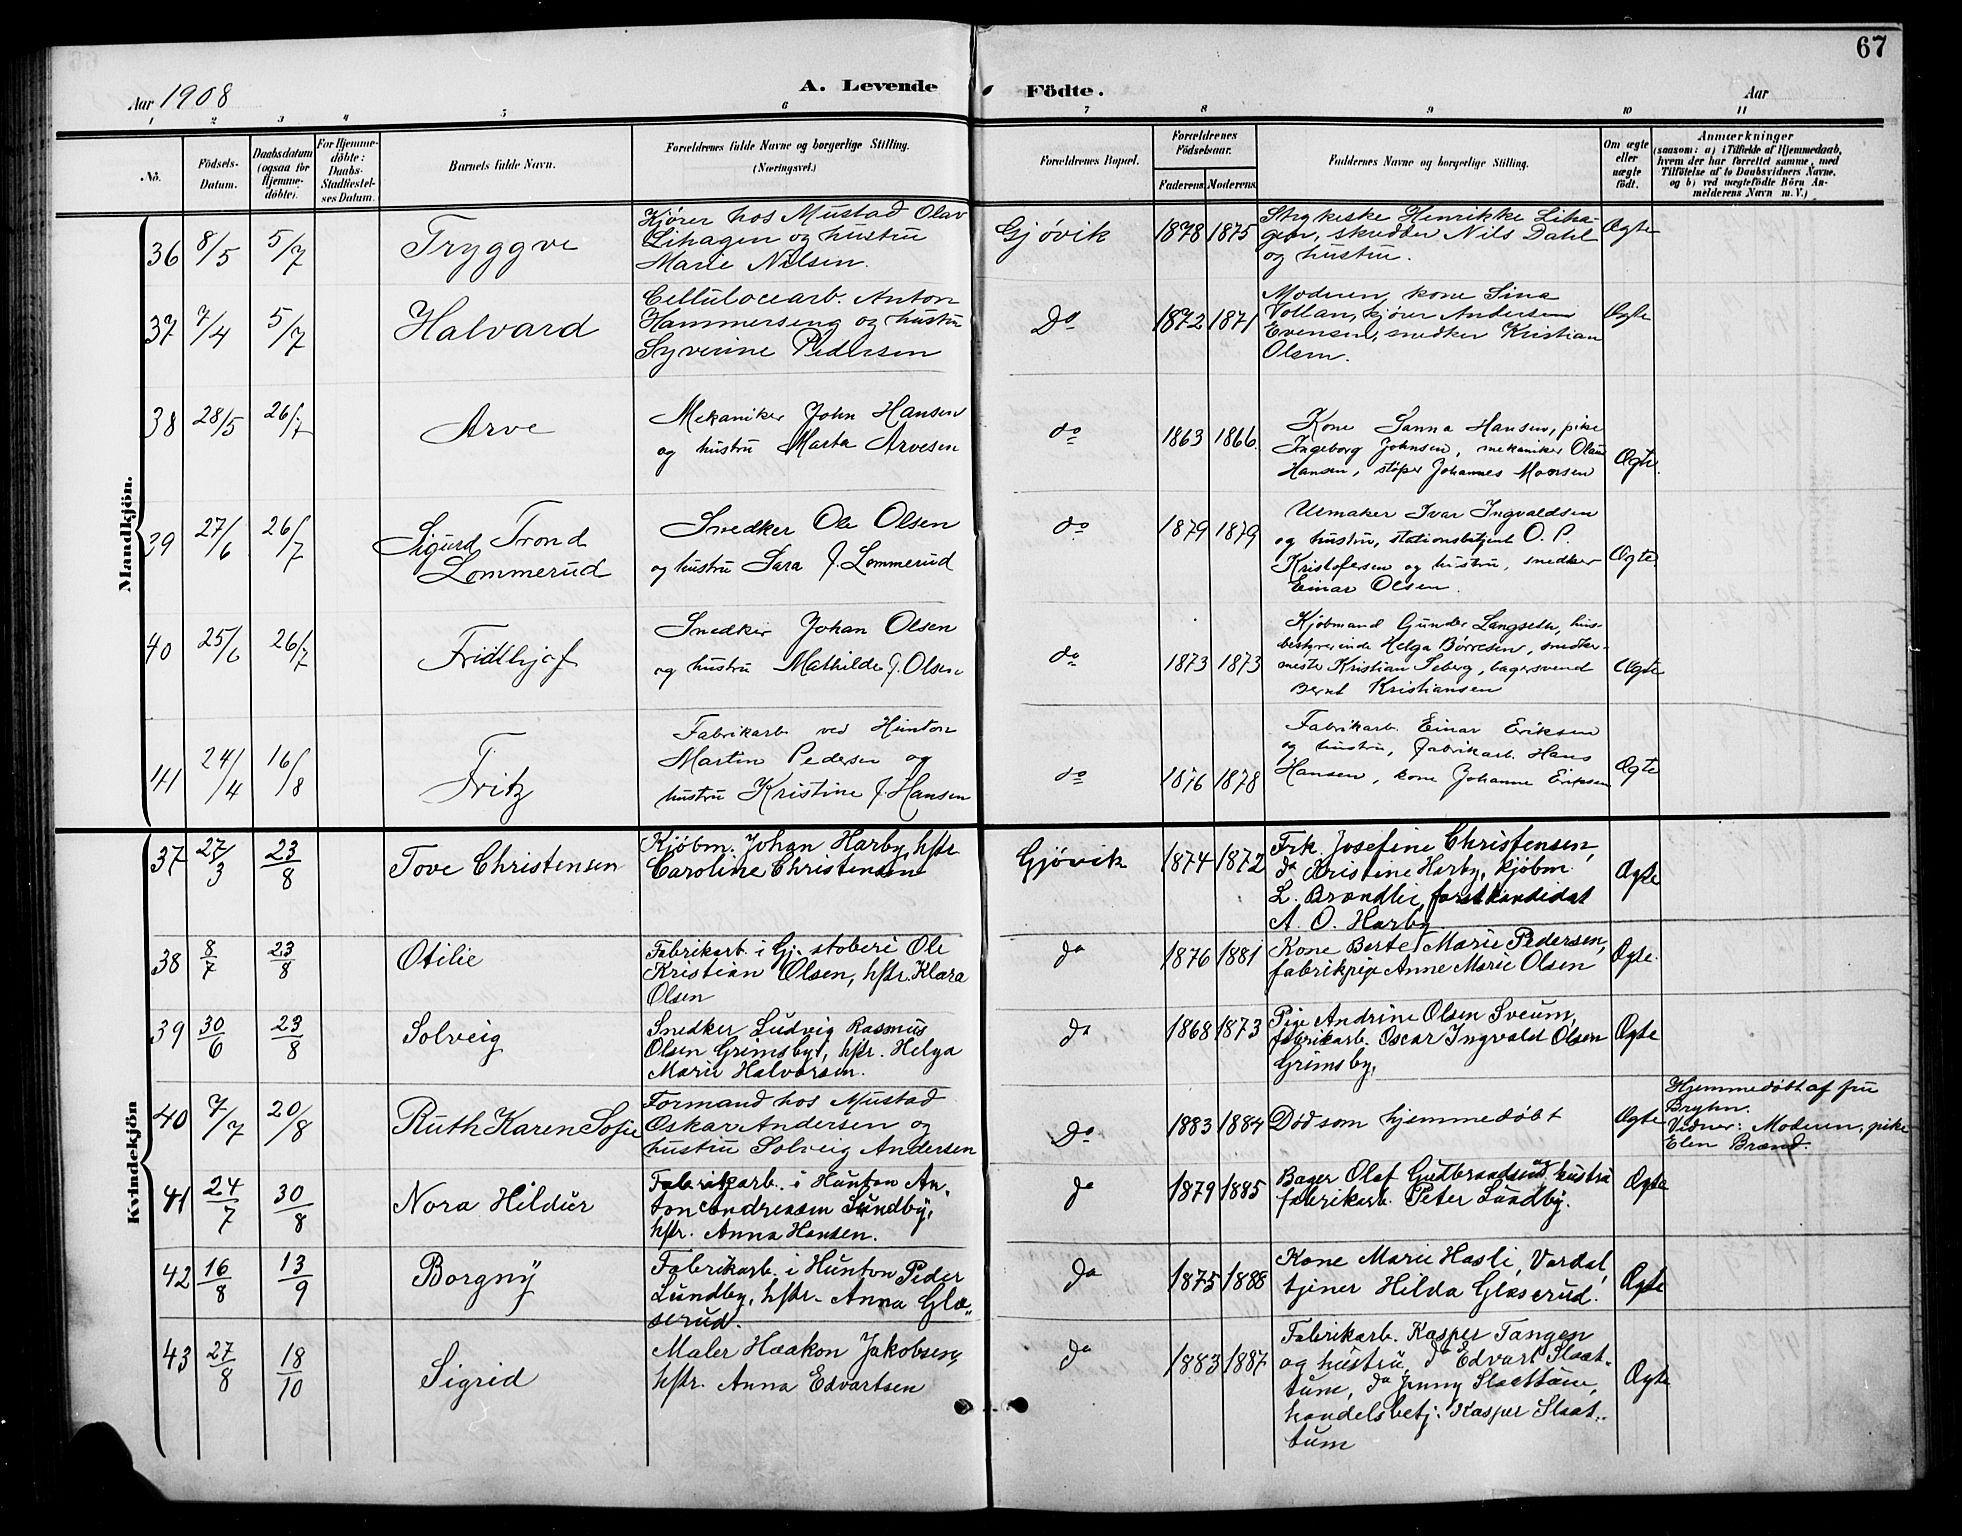 67
Aar 1908
A. Levende
Födte.
Aar
1 2 3 4 5 6 7 8 9 10 11
No.
Födsels-Datum.
Daabsdatum (ogsaa for Hjemme-döbte).
For Hjemme-döbte: Daabs-Stadfæstel-ses Datum.
Barnets fulde Navn.
Forældrenes fulde Navne og borgerlige Stilling.
(Næringsvei.)
Forældrenes Bopæl.
Forældrenes Födselsaar.
Faderens. Moderens.
Faddernes Navne og borgerlige Stilling.
Om ægte eller uægte födt.
Anmærkninger
(saasom: a) i Tilfælde af Hjemmedaab, hvem der har forrettet samme, med Tilföielse af to Daabsvidners Navne, og b) ved uægtefödte Börn An-melderens Navn m. V.)
Mandkjön.
36 8/5 5/7 Tryggve
Kjører hos Mustad Olav
Lihagen og hustru
Marie Nilsen.
Gjøvik 1878 1875
Henrikke Liha-
gen, skrædder Nils Dahl
og hustru.
Ægte
37 7/4 5/7 Halvard
Cellulocearb. Anton
Hammerseng og hustru
Syverine Pedersen
Do 1872 1871
Moderen, kone Sina
Vollan, kjører Andersen
Evensen, snedker Kristian
Olsen.
Ægte
38 28/5 26/7 Arve
Mekaniker John Hansen
og hustru Marta Arvesen
do 1863 1866
Kone Sanna Hansen, pike
Ingeborg Johnsen, mekaniker Olaus
Hansen, støper Johannes Monsen
Ægte.
39 27/6 26/7 Sigurd Trond
Lommerud
Snedker Ole Olsen
og hustru Sara J. Lommerud
do 1879 1879
Urmaker Ivar Ingvaldsen
og hustru, stationsbetjent O. P.
Kristofersen og hustru, snedker
Einar Olsen.
Ægte
40 25/6 26/7 Fridthjof
Snedker Johan Olsen
og hustru Mathilde J. Olsen
do 1873 1873
Kjøbmand Gunder Langseth, hus-
bestyrerinde Helga Børresen, snedker-
mester Kristian Seberg, bagersvend
Bernt Kristiansen
Ægte
41 24/4 16/8 Fritz
Fabrikarb ved Hunton
Martin Pedersen og
hustru Kristine J. Hansen
do 1876 1878
Fabrikarb. Einar Eriksen
og hustru, fabrikarb. Hans
Hansen, kone Johanne Eriksen
Ægte
Kvindekjön
37 27/3 23/8 Tove Christensen
Kjøbm. Johan Harby, hstr
Caroline Christensen
Gjøvik 1874 1872
Frk. Josefine Christensen,
do Kristine Harby, kjøbm.
L. Brændlie, forstkandidat
A. O. Harby
Ægte
38 8/7 23/8 Otilie
Fabrikarb. i Gj. støberi Ole
Kristian Olsen, hstr. Klara
Olsen
do 1876 1881
Kone Berte Marie Pedersen,
fabrikpige Anne Marie Olsen
Ægte.
39 30/6 23/8 Solveig
Snedker Ludvig Rasmus
Olsen Grimsby, hstr. Helga
Marie Halvorsen.
do 1868 1873
Pige Andrine Olsen Sveum,
fabrikarb. Oscar Ingvald Olsen
Grimsby.
Ægte
40 7/7 20/8 Ruth Karen Sofie
Formand hos Mustad
Oskar Andersen og
hustru Solveig Andersen
Do 1883 1884 Död som hjemmedøbt
Ægte
Hjemmedøbt af fru
Bryhn.
Vidner: Moderen, pike
Elen Brænd.
41 24/7 30/8 Nora Hildur
Fabrikarb. i Hunton An-
ton Andreassen Lundby,
hstr. Anna Hansen.
do 1879 1885
Bager Olaf Gudbrandsen og hustru
fabrikarb. Peter Lundby.
Ægte
42 16/8 13/9 Borgny
Fabrikarb. i Hunton Peder
Lundby, hstr. Anna Glæ-
serud.
do 1875 1888
Kone Marie Hasli, Vardal,
tjener Hilda Glæserud.
Ægte
43 27/8 18/10 Sigrid
Maler Haakon Jakobsen,
hstr. Anna Edvartsen
do 1883 1887
Fabrikarb. Kasper Tangen
og hustru, do Edvart Slaat-
tum, do Jenny Slaattum,
handelsbetj. Kasper Slaat-
tum
Ægte